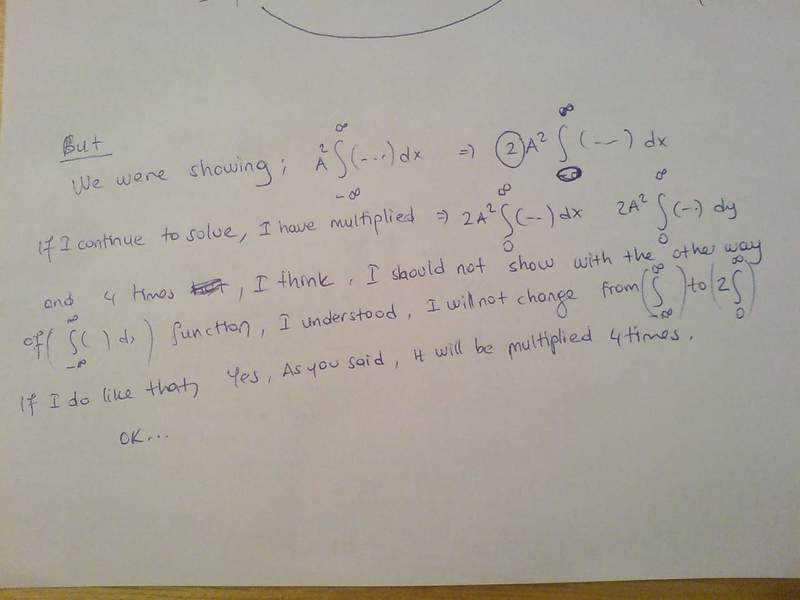 But
We were showing; A² ∫_{-∞}^{∞} (---) dx ⇒ 2A² ∫_{0}^{∞} (—) dx
If I continue to solve, I have multiplied ⇒ 2A² ∫_{0}^{∞} (--) dx 2A² ∫_{0}^{∞} (--) dy
and 4 times, I think, I should not show with the other way
of ( ∫_{-∞}^{∞} ( ) dx ) function, I understood, I will not change from ( ∫_{-∞}^{∞} ) to ( 2 ∫_{0}^{∞} )
If I do like that, Yes, As you said, it will be multiplied 4 times.
OK...